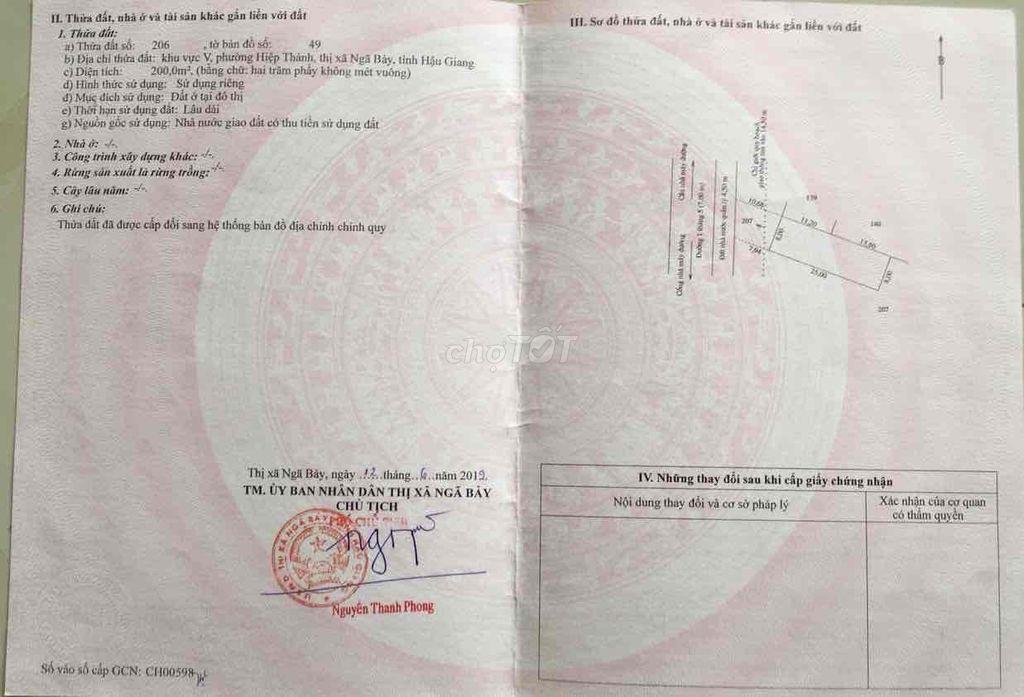 II. Thửa đất, nhà ở và tài sản khác gắn liền với đất
1. Thửa đất:
a) Thửa đất số: 206 , tờ bản đồ số: 49
b) Địa chỉ thửa đất: khu vực V, phường Hiệp Thành, thị xã Ngã Bảy, tỉnh Hậu Giang
c) Diện tích: 200,0m², (bằng chữ: hai trăm phẩy không mét vuông)
d) Hình thức sử dụng: Sử dụng riêng
đ) Mục đích sử dụng: Đất ở tại đô thị
e) Thời hạn sử dụng đất: Lâu dài
g) Nguồn gốc sử dụng: Nhà nước giao đất có thu tiền sử dụng đất
2. Nhà ở: -/-.
3. Công trình xây dựng khác: -/-.
4. Rừng sản xuất là rừng trồng: -/-.
5. Cây lâu năm: -/-.
6. Ghi chú:
Thửa đất đã được cấp đổi sang hệ thống bản đồ địa chính chính quy
Thị xã Ngã Bảy, ngày 12 tháng 6 năm 2019
TM. ỦY BAN NHÂN DÂN THỊ XÃ NGÃ BẢY
CHỦ TỊCH
Nguyễn Thanh Phong
Số vào sổ cấp GCN: CH00598
III. Sơ đồ thửa đất, nhà ở và tài sản khác gắn liền với đất
B
Chỉ giới quy hoạch
giao thông tim vào 14,50 m
Cống nhà máy đường
Cầu nhà máy đường
Đường 1 tháng 5 (7,00 m)
Đất nhà nước quản lý 4,50 m
10,68
139
207
11,20
140
8,00
13,80
7,94
25,00
8,00
207
chợTỐT
IV. Những thay đổi sau khi cấp giấy chứng nhận
Nội dung thay đổi và cơ sở pháp lý
Xác nhận của cơ quan
có thẩm quyền